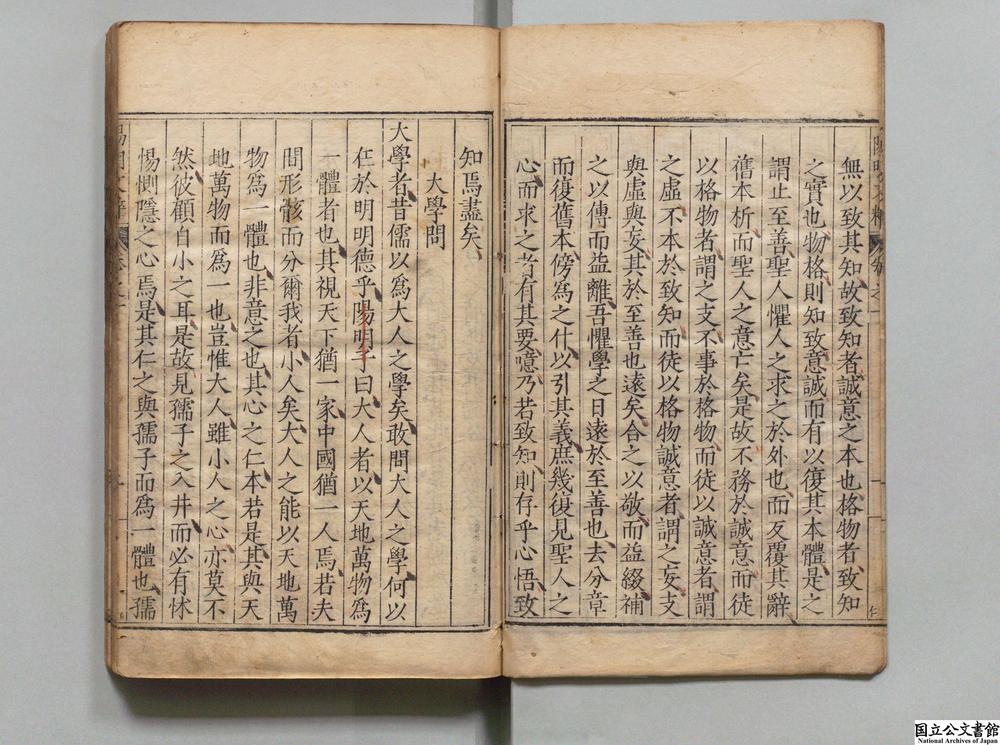 無以致其知故致知者誠意之本也格物者致知
之實也物格則知致意誠而有以復其本體是之
謂止至善聖人懼人之求之於外也而反覆其辭
舊本析而聖人之意亡矣是故不務於誠意而徒
以格物者謂之支不事於格物而徒以誠意者謂
之虛不本於致知而徒以格物誠意者謂之妄支
與虛與妄其於至善也遠矣合之以敬而益綴補
之以傳而益離吾懼學之日遠於至善也去分章
而復舊本傍為之什以引其義庶幾復見聖人之
心而求之者有其要噫乃若致知則存乎心悟致
知焉盡矣
大學問
大學者昔儒以爲大人之學矣敢問大人之學何以
在於明明德乎陽明子曰大人者以天地萬物爲
一體者也其視天下猶一家中國猶一人焉若夫
間形骸而分爾我者小人矣大人之能以天地萬
物爲一體也非意之也其心之仁本若是其與天
地萬物而爲一也豈惟大人雖小人之心亦莫不
然彼顧自小之耳是故見孺子之入井而必有怵
惕惻隱之心焉是其仁之與孺子而爲一體也孺
国立公文書館
National Archives of Japan